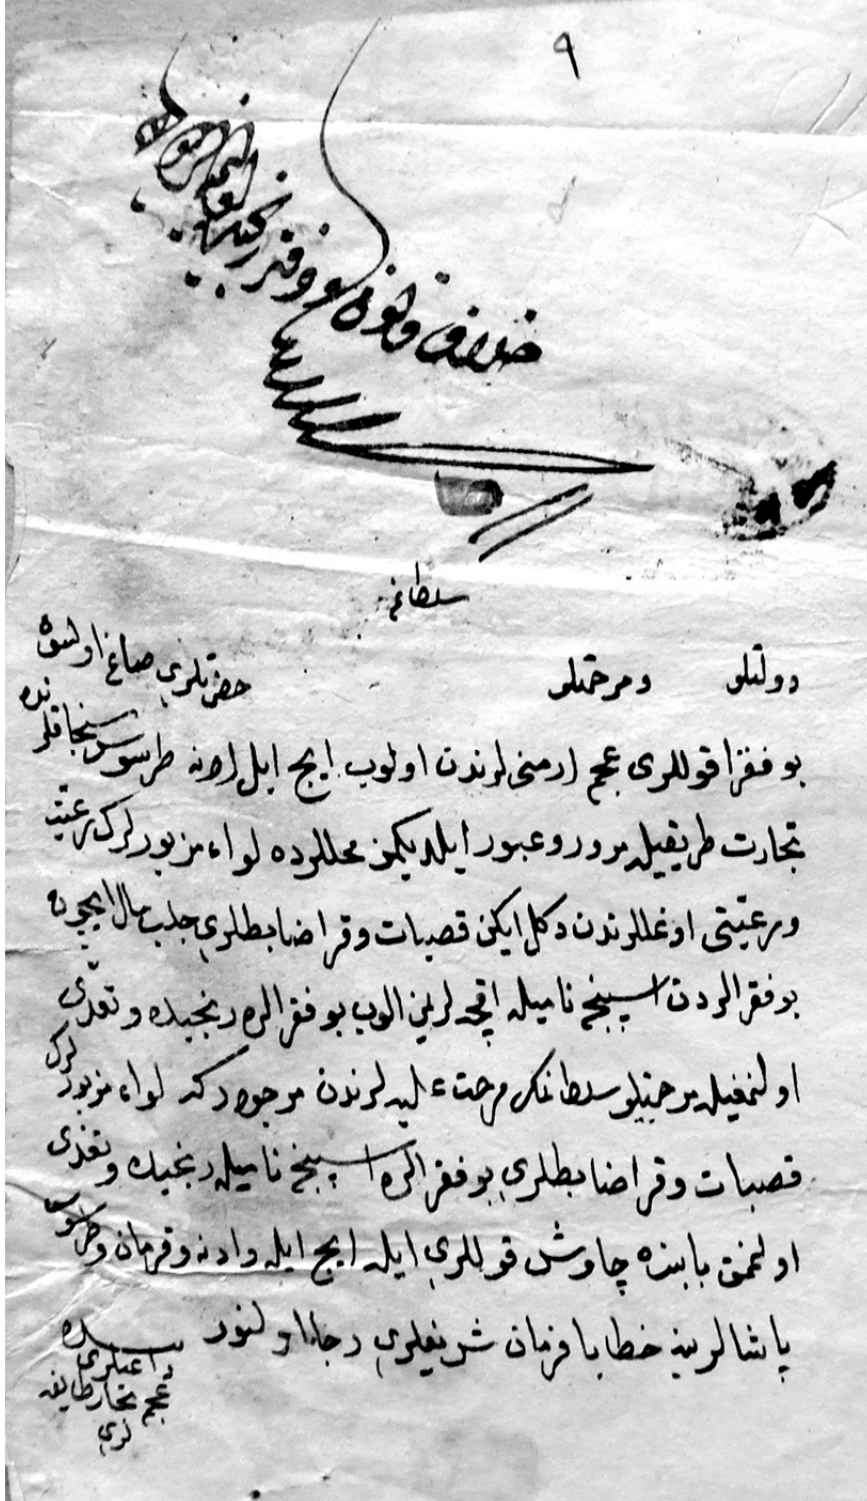 ٩
خلاف قانون و دفتر رنجیده
سلطانم
دولتلو و مرحمتلو حضرتلری صاغ اولسون
بو فقرا قوللری عجم ارمنیلرندن اولوب ایچ ایل ادنه طرسوس سنجاقلرنده
تجارت طریقیله مرور و عبور ایلدیکمز محللرده لواء مزبورلرك رعیت
و رعیتی اوغللرندن دكل ایکن قصبات و قرا ضابطلری جلب مال ایچون
بو فقرالردن اسپنج نامیله اقچه لریمز الوب بو فقرالره رنجیده و تعدی
اولنمغیله مرحمتلو سلطانمك مرحمت علیه لرندن مرجودركه لواء مزبورلرك
قصبات و قرا ضابطلری بو فقرالره اسپنج نامیله رنجیده و تعدی
اولنمق بابنده چاوش قوللری ایله ایچ ایله و ادنه و قرمان و طرسوس
پاشالرینه خطابا فرمان شریفلری رجا اولنور
بنده
داعیلری
عجم تجار طایفه
لری